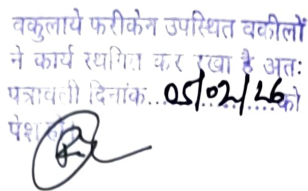 वकुलाये फरीकेन उपस्थित वकीलों
ने कार्य स्थगित कर रखा है अतः
पत्रावली दिनांक...05/02/26...को
पेश हो।